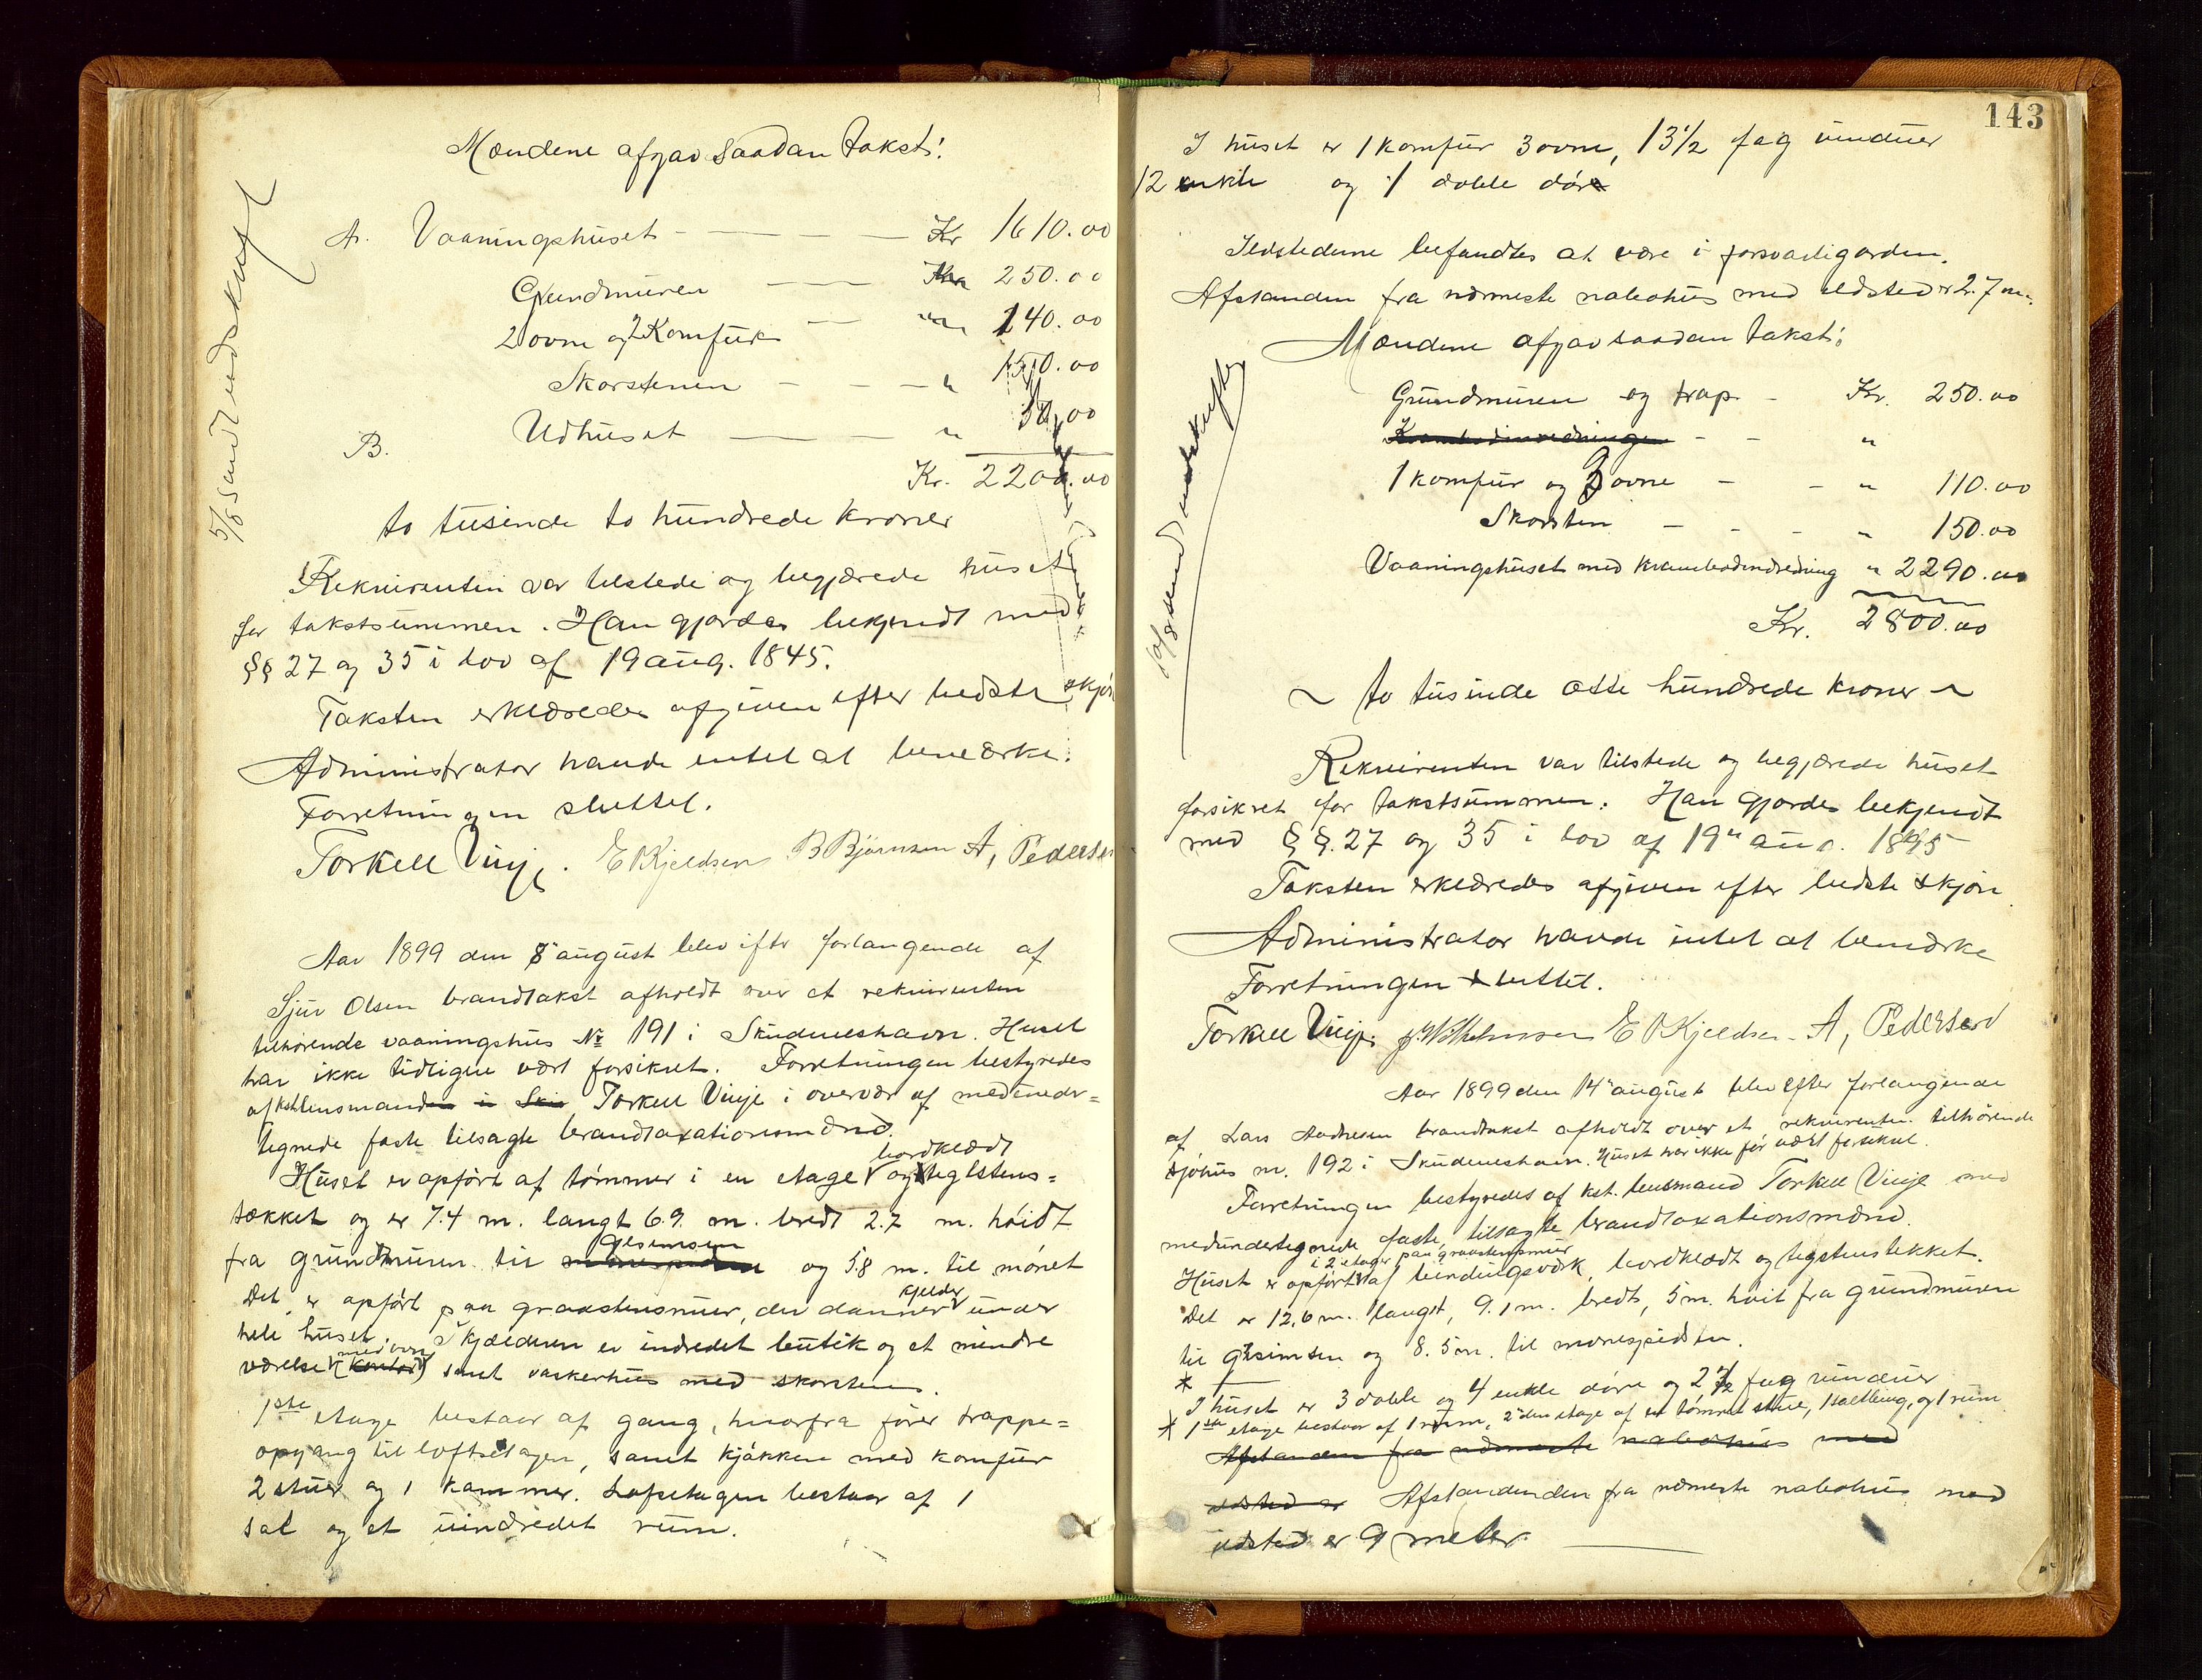 Mændene afgav saadan takst:
A. Vaaningshuset - - - Kr 1610.00
Grundmuren - - " 250.00
2 ovne og 2 Komfur - " 140.00
Skorstenen - - - " 150.00
B. Udhuset - - - " 50.00
Kr. 2200.00
to tusinde to hundrede kroner
Rekvirenten var tilstede og begjærede huset
for takstsummen. Han gjordes bekjendt med
§§ 27 og 35 i lov af 19 aug. 1845.
Taksten erklæredes afgiven efter bedste skjøn
Administrator havde intet at bemærke.
Forretningen sluttet.
Torkell Vinje. E Kjeldsen B Bjørnsen A, Pedersen
5/8 sendt udskrift
Aar 1899 den 8 august blev efter forlangende af
Sjur Olsen brandtakst afholdt over et rekvirenten
tilhørende vaaningshus № 191 i Skudeneshavn. Huset
har ikke tidligere vært forsikret. Forretningen bestyredes
af kst. lensmanden i Sku Torkell Vinje i overvær af medunder=
tegnede faste tilsagte brandtaxationsmænd.
Huset er opført af tømmer i en etage bordklædt og teglstens=
tækket og er 7.4 m. langt 6.9. m. bredt 2.7 m. høidt
fra grundmuren til gesimsen og 5.8 m. til mønet
Det er opført paa graastensmuer, der danner kjelder under
hele huset. I kjælderen er indredet butik og et mindre
værelse med ovn (kontor) samt vaskerhus med skorsten.
1ste etage bestaar af gang, hvorfra fører trappe=
opgang til loftsetagen, samt kjøkken med komfur
2 stuer og 1 kammer. Loftsetagen bestaar af 1
sal og et uindredet rum.
143
I huset er 1 komfur 3 ovne, 13 1/2 fag vinduer
12 enkle og 1 doble døre
Ildstederne befandtes at være i forsvarlig orden.
Afstanden fra nærmeste nabohus med ildsted er 2.7 m.
Mændene afgav saadan takst:
Grundmuren og trap - Kr. 250.00
Krambodinredningen - - "
1 komfur og 3 ovne - - " 110.00
Skorsten - - - " 150.00
Vaaningshuset med krambodindredning " 2290.00
Kr. 2800.00
~ to tusinde otte hundrede kroner ~
Rekvirenten var tilstede og begjærede huset
forsikret for takstsummen. Han gjordes bekjendt
med §§. 27 og 35 i lov af 19" aug. 1845
Taksten erklæredes afgiven efter bedste skjøn
Administrator havde intet at bemærke
Forretningen sluttet.
Torkell Vinje E Kjeldsen - A, Pedersen
sendt udskrift
Aar 1899 den 14" august blev efter forlangende
af Lars brandtakst afholdt over et rekvirenten tilhørende
sjøhus nr. 192 i Skudeneshavn. Huset har ikke før vært forsikret.
Forretningen bestyredes af kst. lensmand Torkell Vinje med
medundertegnede faste, tilsagte brandtaxationsmænd.
Huset er opført i 2 etager paa graastensmuer af bindingsværk, bordklædt og teglstenstækket.
Det er 12,6 m. langt, 9.1 m. bredt, 5 m. høit fra grundmuren
til gesimsen og 8.5 m. til mønespidsen.
*
I huset er 3 doble og 4 enkle døre og 2 1/2 fag vinduer
* 1ste etage bestaar af 1 rum, 2den etage af en tømret stue, 1 saltbing, og 1 rum
Afstanden fra nærmeste nabohus med
ildsted er Afstandenden fra nærmeste nabohus med
ildsted er 9 meter.